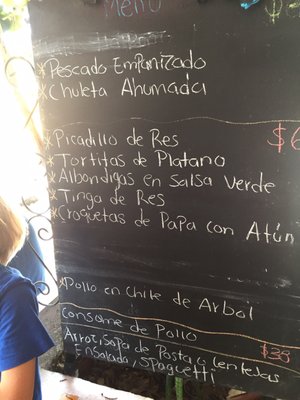 Menu
*Pescado Empanizado
*Chuleta Ahumada
*Picadillo de Res
*Tortitas de Platano
*Albondigas en Salsa Verde
*Tinga de Res
*Croquetas de Papa con Atún
*Pollo en Chile de Arbol
Consome de Pollo
Arroz, Sopa de Pasta o Lentejas
Ensalada, Spaguetti